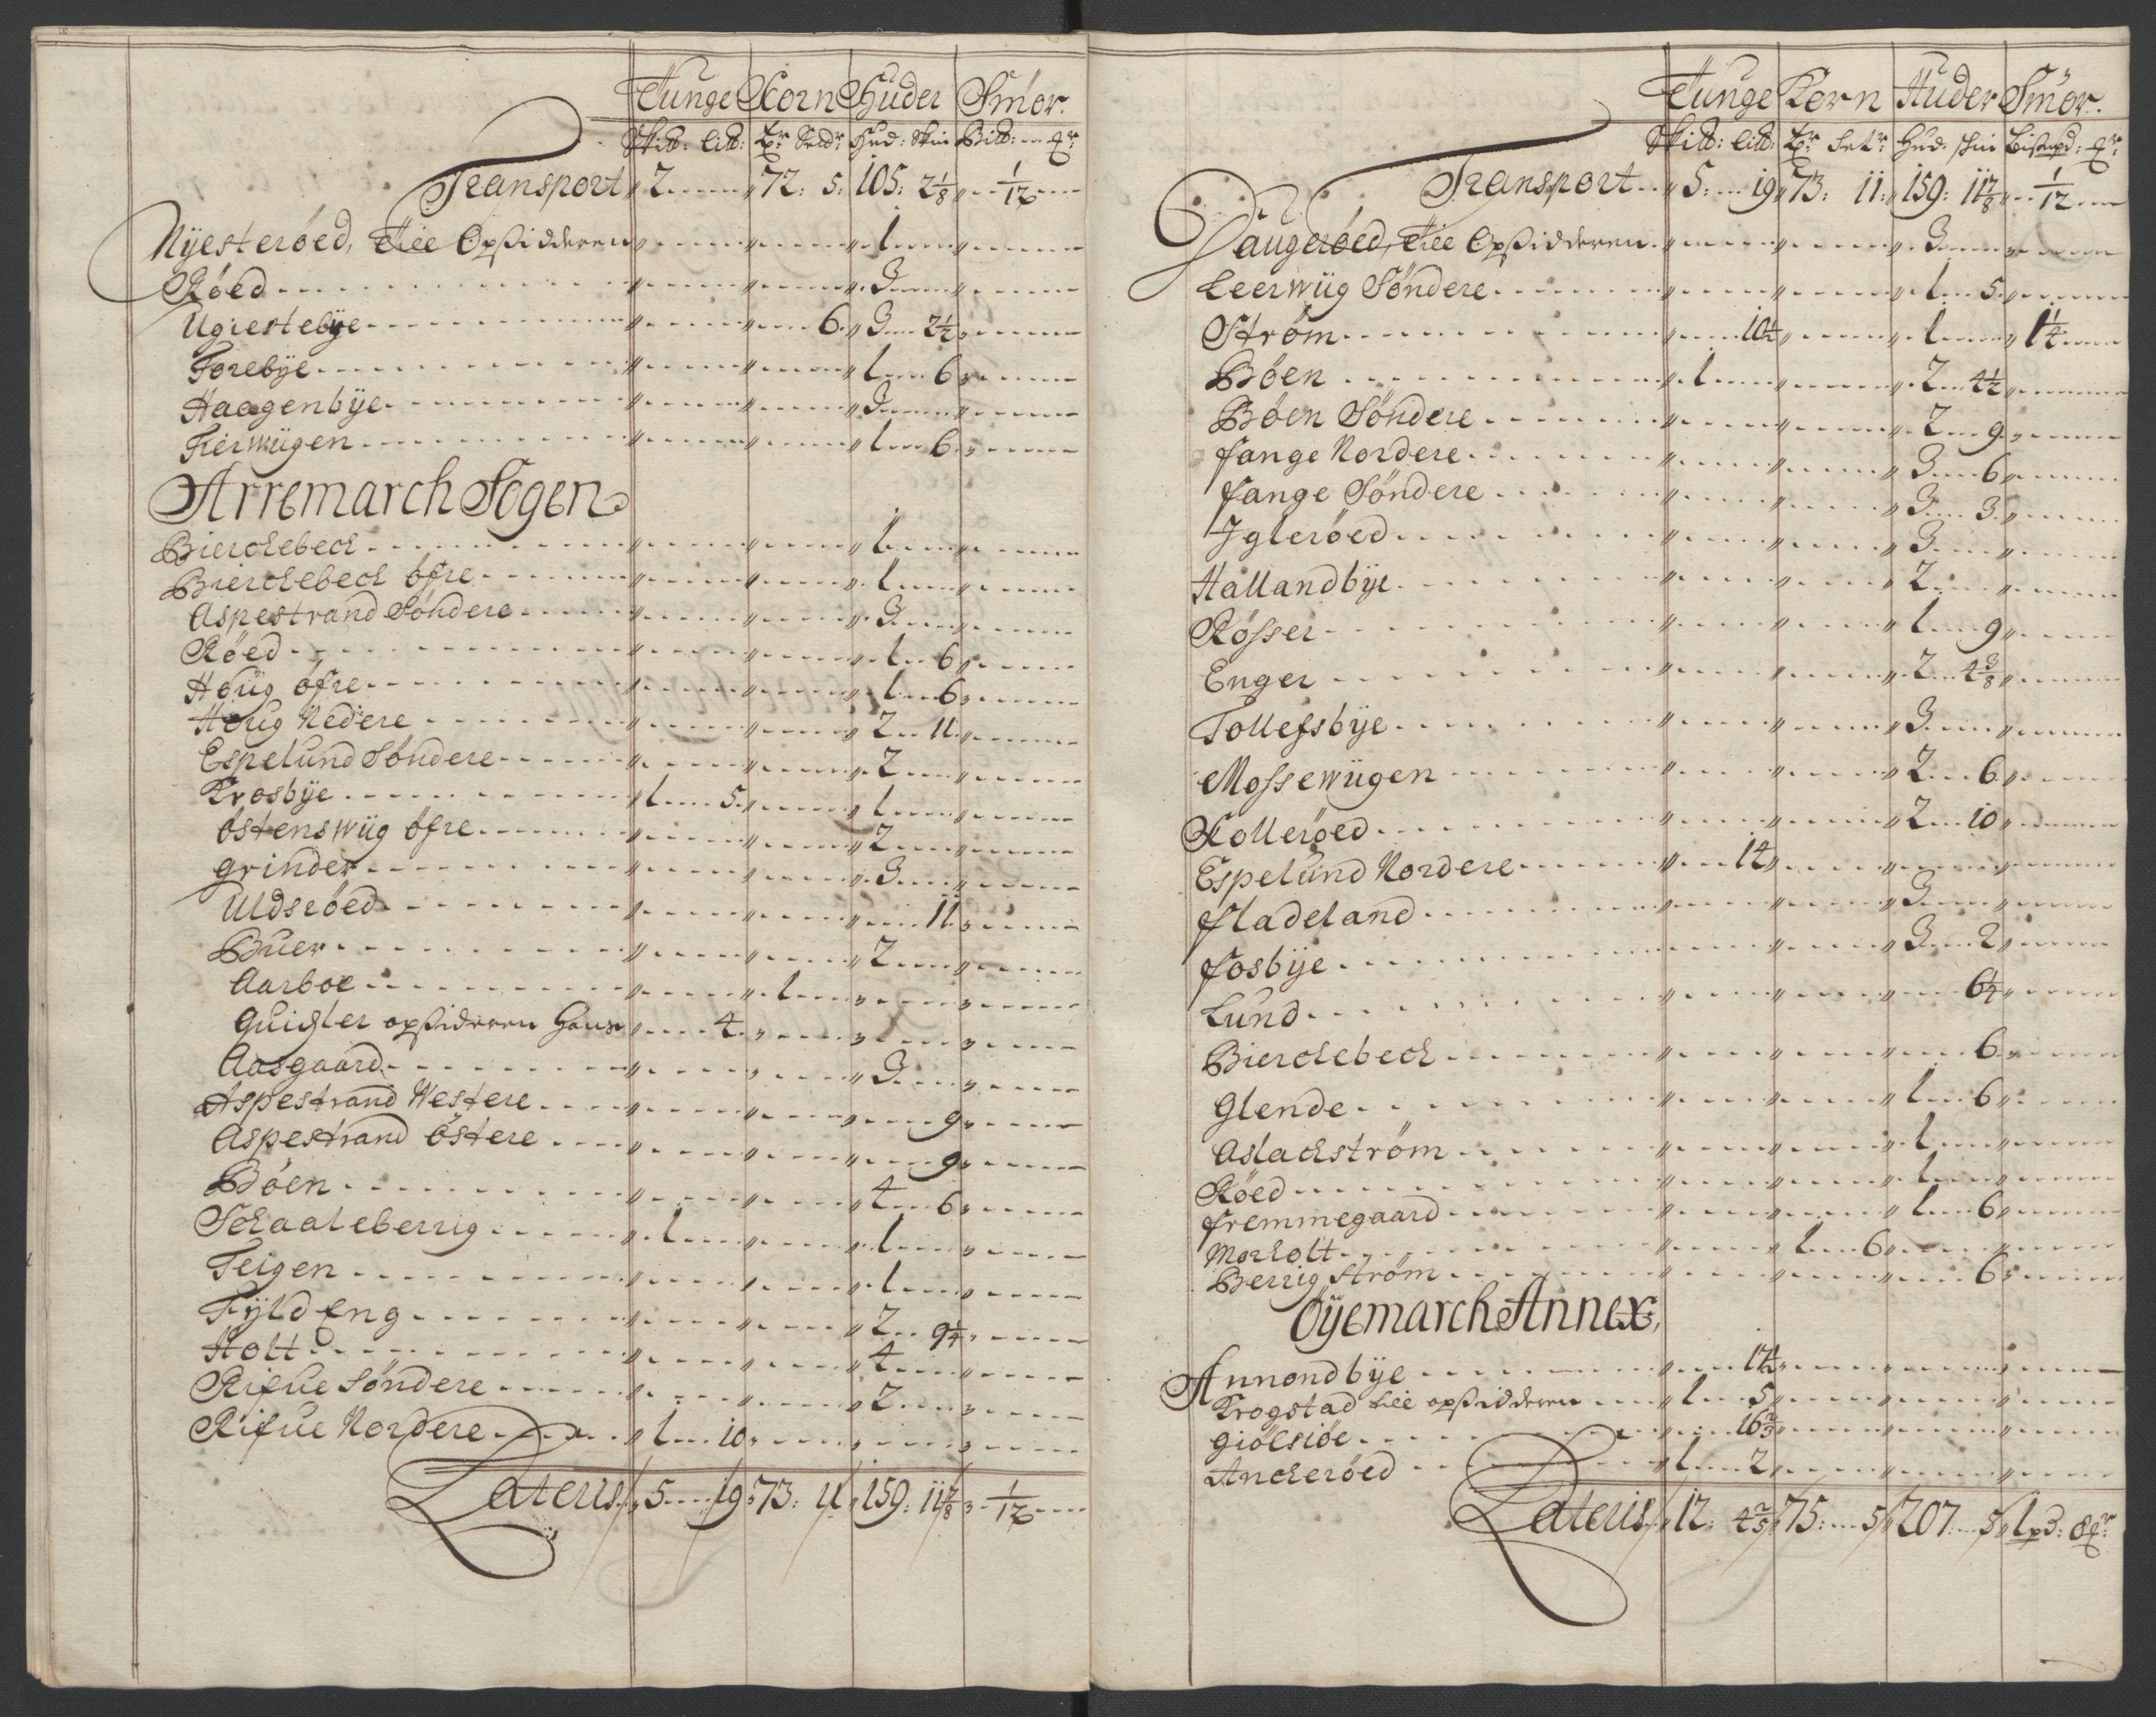 Tunge Korn Huder Smör.
Sk℔: Li℔: Tr Setdr Hud: Skin Bi℔: Qr
Transport 2 72: 5: 105: 2 1/8 1/12
Nÿesteröed, Tlee Opsidderen 1
Röed 3
Ugiestebÿe 6 3 2 1/2
Torebÿe 1 6
Haagenbÿe 3
Tierwügen 1 6
Arremarch Sogen
Bierckebeck 1
Bierckebeck öfre 1
Aspestrand Söndere 3
Röed 1 6
Houg öfre 1 6
Houg Nedere 2 11
Espelund Söndere 2
Krosbÿe 1 5 1
Östenswüg öfre 2
Grinder 3
Uldsröed 11
Buer 2
Aarboe 1
Quigler opsideren Hans 4
Aasgaard 3
Aspestrand Westere 9
Aspestrand östere 9
Böen 4 6
Schaaleberrig 1 1
Teigen 1
Fÿld Eng 2 9 1/4
Holt 4
Rifue Söndere 2
Rifue Nordere 1 10
Lateris 5 19 73: 11 159: 11 7/8 1/12
Tunge Korn Huder Smör.
Sk℔: Li℔: Tr Setr Hud: skin Bismpd: Qr
Transport 5: 19 73: 11: 159: 11 7/8 1/12
Haugeröed, Tlee Opsidderen 3
Leerwüg Söndere 1 5
Ström 10 1/2 1 1 1/4
Böen 1 2 4 1/2
Böen Söndere 2 9
fange Nordere 3 6
fange Söndere 3 3
Igleröed 3
Hallandbÿe 2
Rösser 1 9
Enger 2 4 3/8
Tollefsbÿe 3
Mossewügen 2 6
Kolleröed 2 10
Espelund Nordere 14
fladeland 3
fosbÿe 3 2
Lund 6 1/4
Bierckebeck 6
Glende 1 6
Aslackström 1
Röed 1
fremmegaard 1 6
Morkolt 1 6
Berrig Ström 6
Öÿemarch Annex,
Annondbÿe 17 1/2
Krogstad tlee opsidderen 1 5
Giölsiöe 16 2/3
Anckeröed 1 2
Lateris 12: 4 2/5 75: 5 207 5 1 p 3: 8 Qr